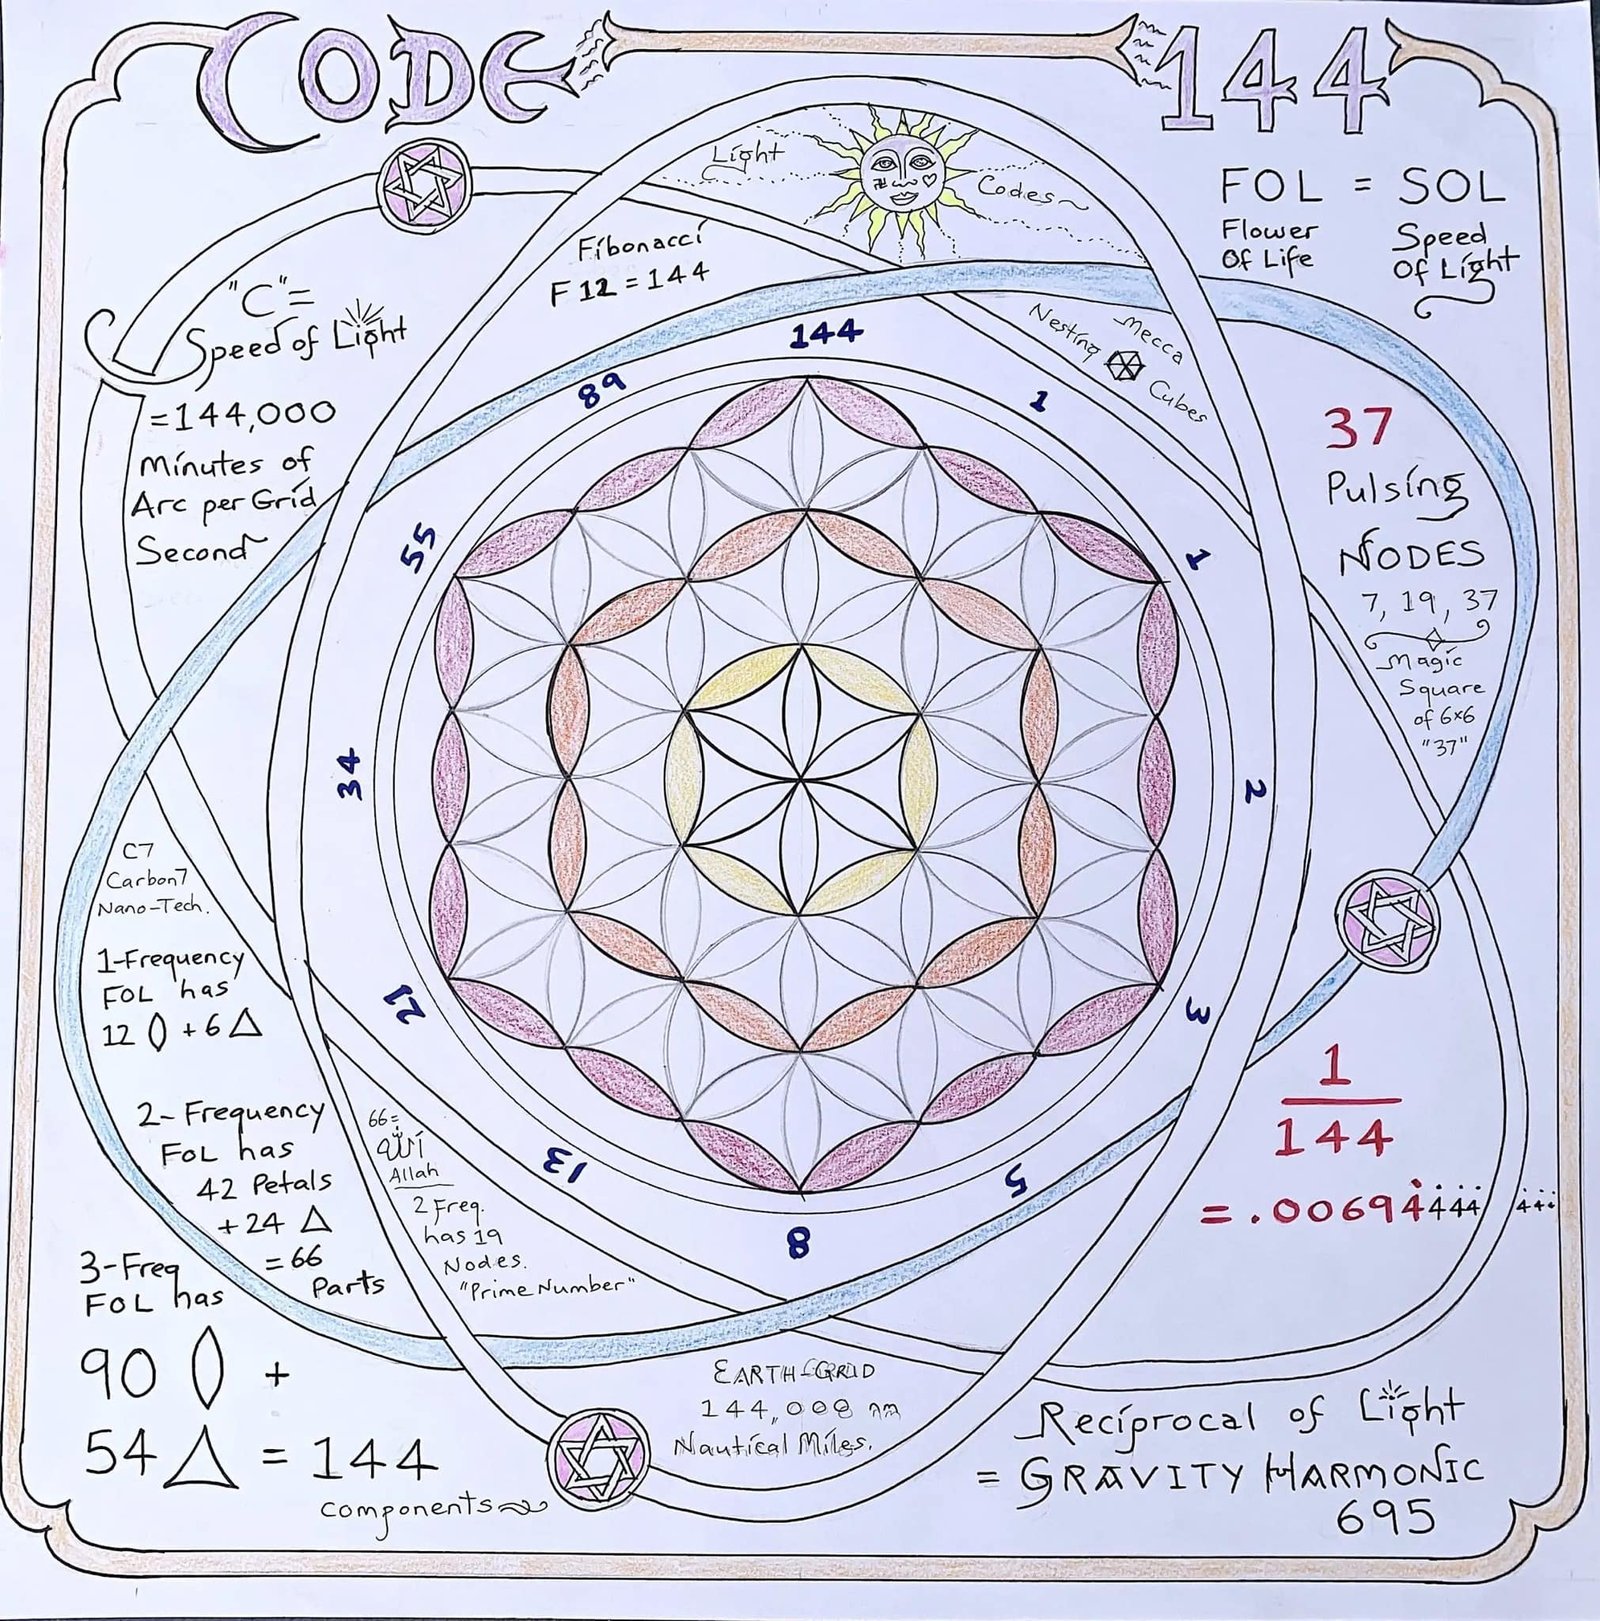 CODE 144
Light
Codes
FOL = SOL
Flower Of Life
Speed Of Light
Fibonacci
F 12 = 144
"C" =
Speed of Light
= 144,000
Minutes of
Arc per Grid
Second
Nesting Mecca
Cubes
144
1
1
2
3
5
8
13
21
34
55
89
37
Pulsing
NODES
7, 19, 37
Magic
Square
of 6x6
"37"
C7
Carbon7
Nano-Tech.
1-Frequency
FOL has
12 + 6 △
2-Frequency
FOL has
42 Petals
+ 24 △
= 66
Parts
66 =
الله
Allah
2 Freq.
has 19
Nodes.
"Prime Number"
3-Freq
FOL has
90 +
54 △ = 144
components
EARTH-GRID
144,000 nm
Nautical Miles.
1
144
= .00694444 444
Reciprocal of Light
= GRAVITY HARMONIC
695